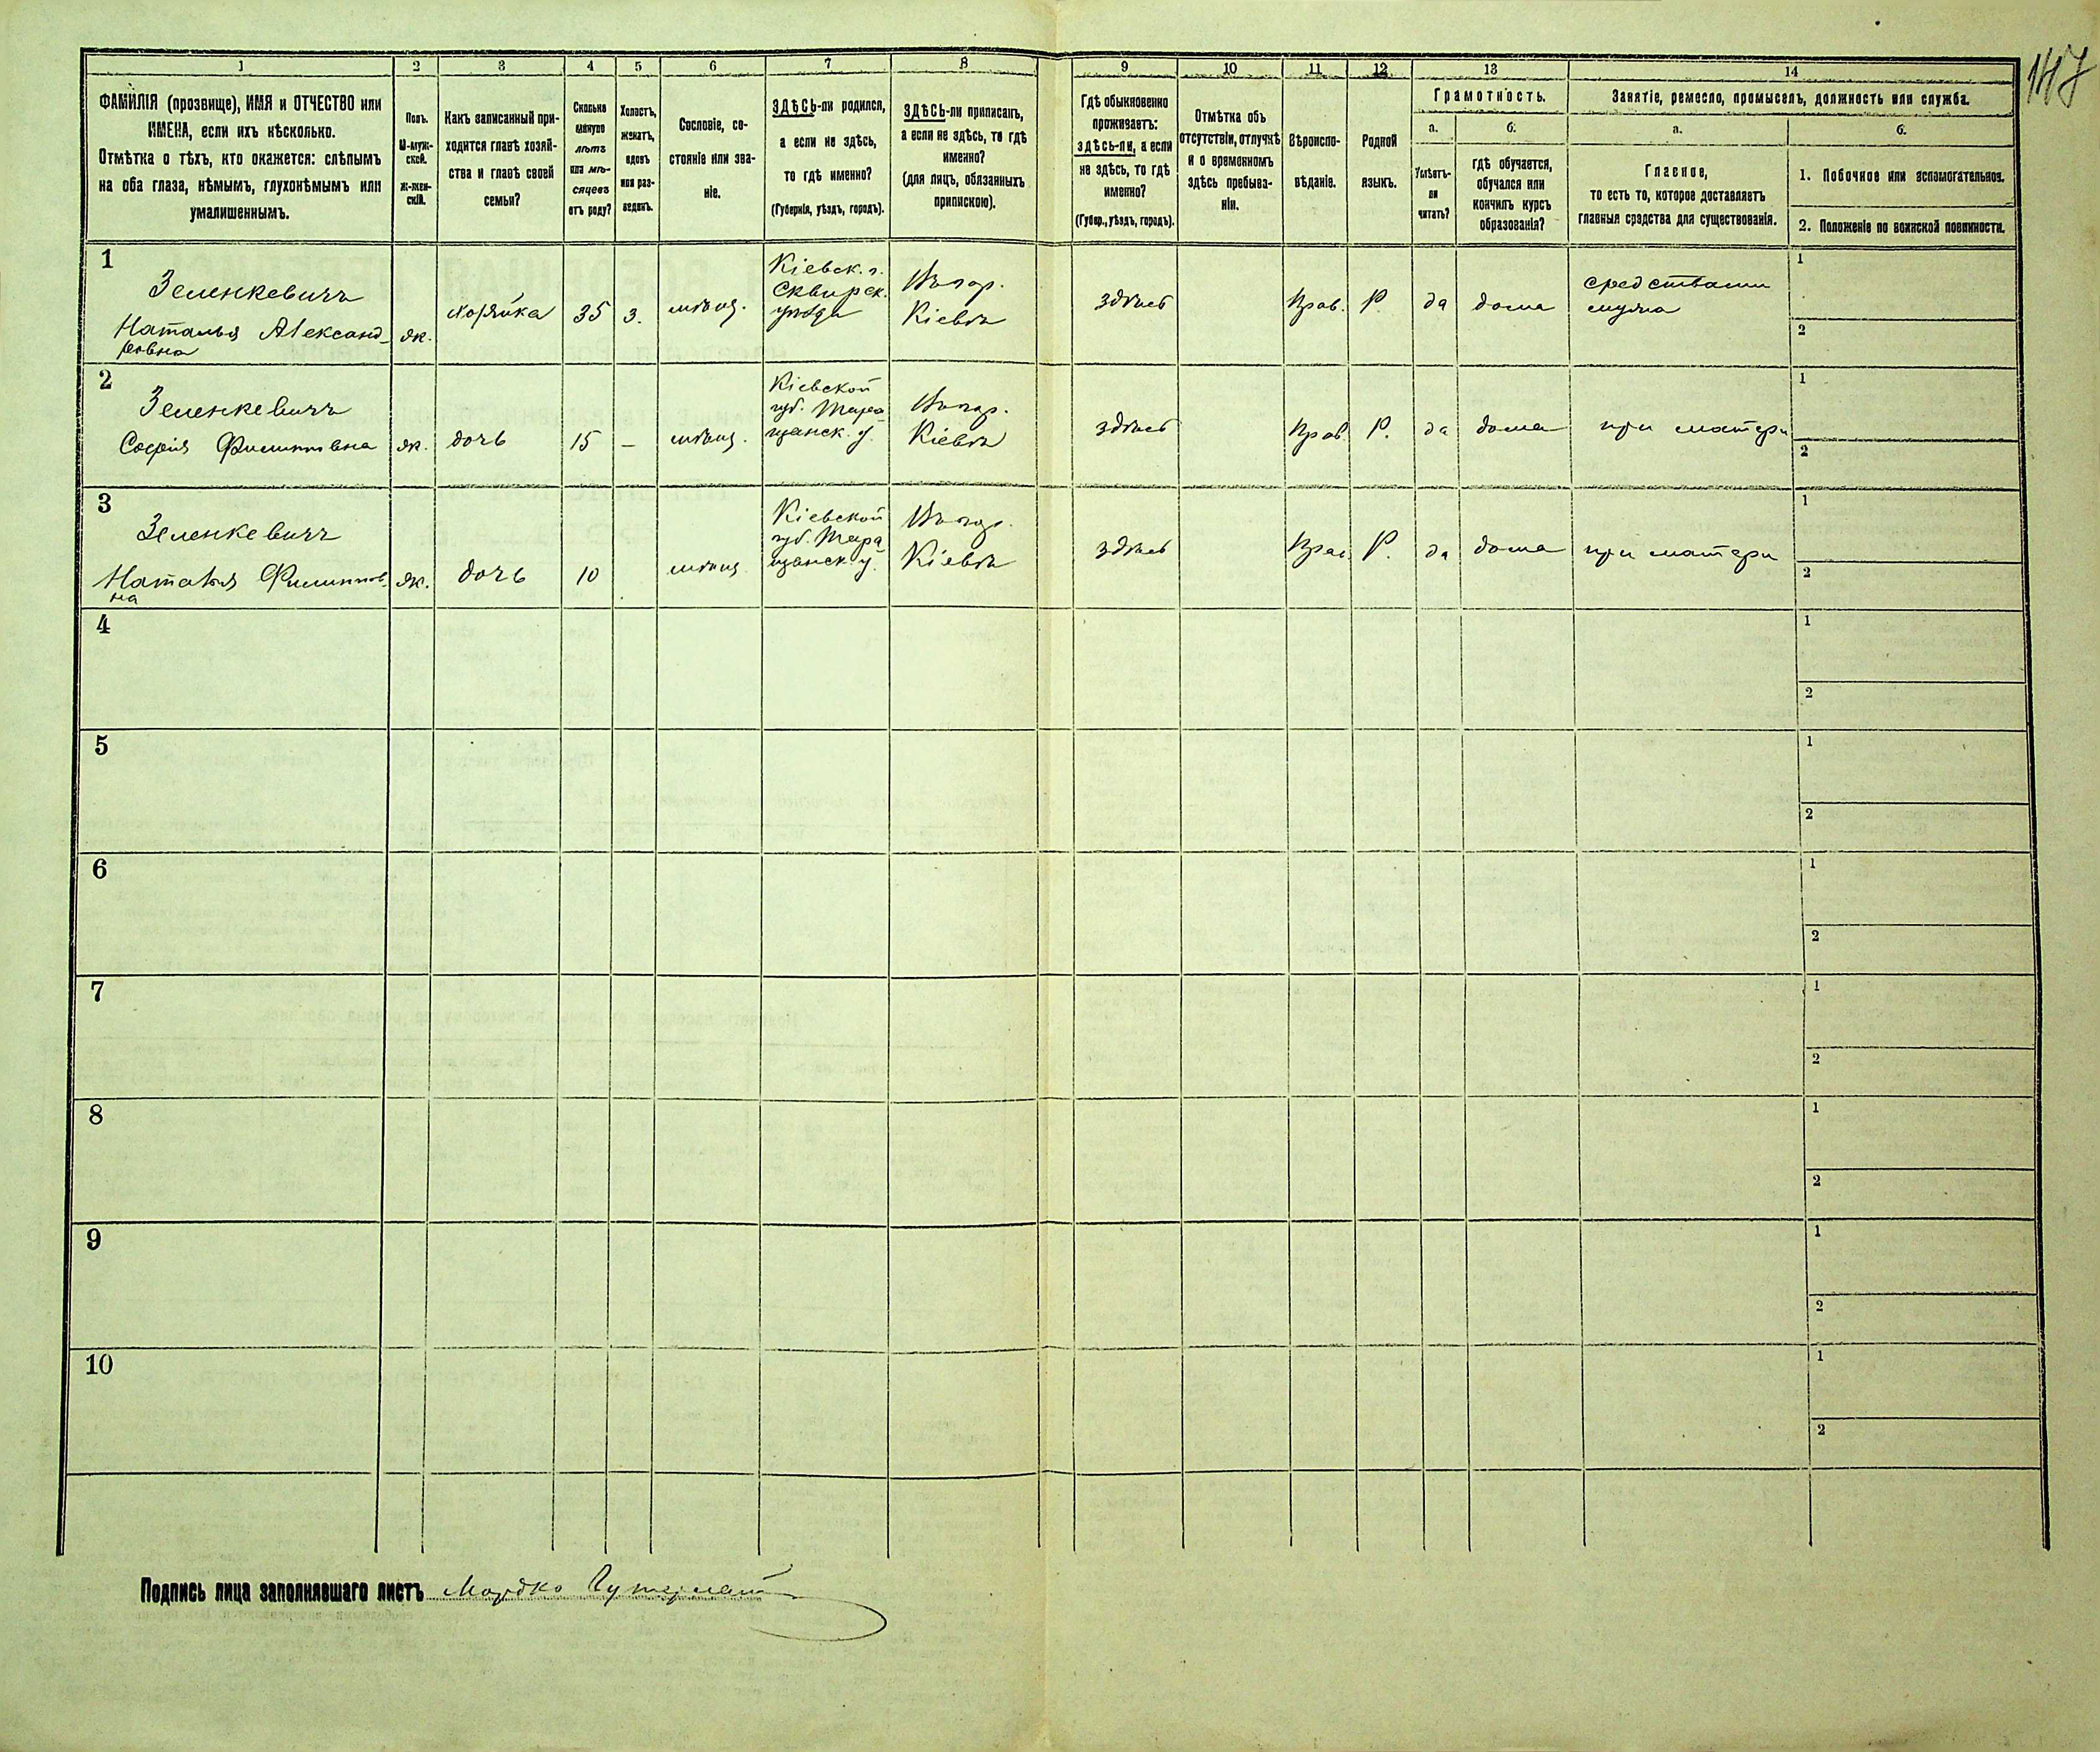 147
1 2 3 4 5 6 7 8 9 10 11 12 13 14
ФАМИЛІЯ (прозвище), ИМЯ и ОТЧЕСТВО или
ИМЕНА, если ихъ нѣсколько.
Отмѣтка о тѣхъ, кто окажется: слѣпымъ
на оба глаза, нѣмымъ, глухонѣмымъ или
умалишеннымъ.
Полъ.
М-муж-
ской.
ж-жен-
скій.
Какъ записанный при-
ходится главѣ хозяй-
ства и главѣ своей
семьи?
Сколько
минуло
лѣтъ
или мѣ-
сяцевъ
отъ роду?
Холостъ,
женатъ,
вдовъ
или раз-
веденъ.
Сословіе, со-
стояніе или зва-
ніе.
ЗДѢСЬ-ли родился,
а если не здѣсь,
то гдѣ именно?
(Губернія, уѣздъ, городъ).
ЗДѢСЬ-ли приписанъ,
а если не здѣсь, то гдѣ
именно?
(для лицъ, обязанныхъ
припискою).
Гдѣ обыкновенно
проживаетъ:
здѣсь-ли, а если
не здѣсь, то гдѣ
именно?
(Губер., уѣздъ, городъ).
Отмѣтка объ
отсутствіи, отлучкѣ
и о временномъ
здѣсь пребыва-
ніи.
Вѣроиспо-
вѣданіе.
Родной
языкъ.
Грамотность.
а.
Умѣетъ-
ли
читать?
б.
гдѣ обучается,
обучался или
кончилъ курсъ
образованія?
Занятіе, ремесло, промыселъ, должность или служба.
а.
Главное,
то есть то, которое доставляетъ
главныя средства для существованія.
б.
1. Побочное или вспомогательное.
2. Положеніе по воинской повинности.
1
Зеленкевичъ
Наталья Александ-
ровна
ж.
хозяйка
35
з.
мѣщ.
Кіевск. г.
Сквирск.
уѣзда
Въ гор.
Кіевѣ
здѣсь
Прав.
Р.
да
дома
средствами
мужа
1
2
2
Зеленкевичъ
Софія Филипповна
ж.
дочь
15
–
мѣщ.
Кіевской
губ. Тара
щанск. у.
Въ гор.
Кіевѣ
здѣсь
Прав.
Р.
да
дома
при матери
1
2
3
Зеленкевичъ
Наталья Филиппов-
на
ж.
дочь
10
мѣщ.
Кіевской
губ. Тара
щанск. у.
Въ гор.
Кіевѣ
здѣсь
Прав.
Р.
да
дома
при матери
1
2
4
1
2
5
1
2
6
1
2
7
1
2
8
1
2
9
1
2
10
1
2
Подпись лица заполнявшаго листъ Мордко